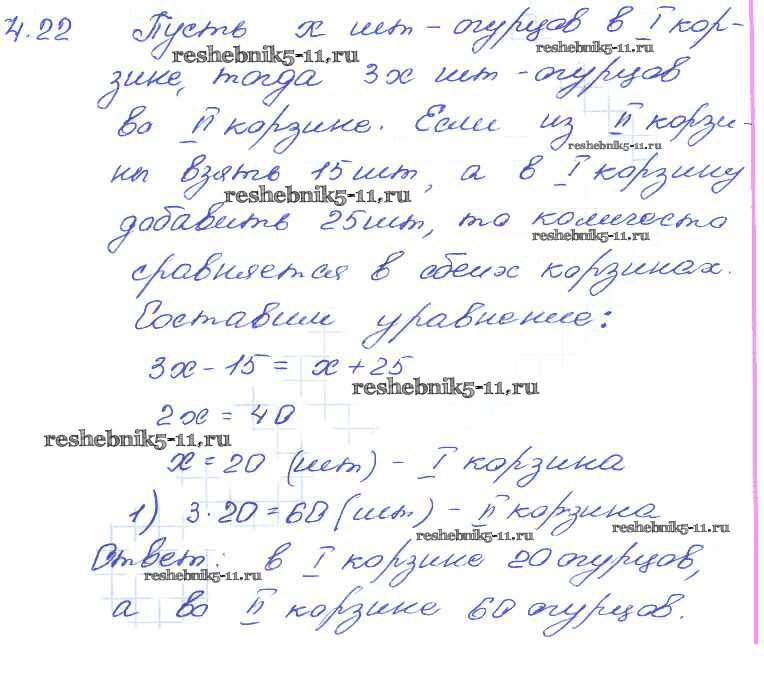 4.22 Пусть x шт - огурцов в I кор-
reshebnik5-11.ru reshebnik5-11.ru
зине, тогда 3x шт - огурцов
во II корзине. Если из II корзи-
reshebnik5-11.ru
ны взять 15 шт, а в I корзину
reshebnik5-11.ru
добавить 25 шт, то количества
reshebnik5-11.ru
сравняется в обеих корзинах.
Составим уравнение:
3x - 15 = x + 25
reshebnik5-11.ru
2x = 40
reshebnik5-11.ru
x = 20 (шт) - I корзина
1) 3 · 20 = 60 (шт) - II корзина
reshebnik5-11.ru reshebnik5-11.ru
Ответ: в I корзине 20 огурцов,
reshebnik5-11.ru
а во II корзине 60 огурцов.